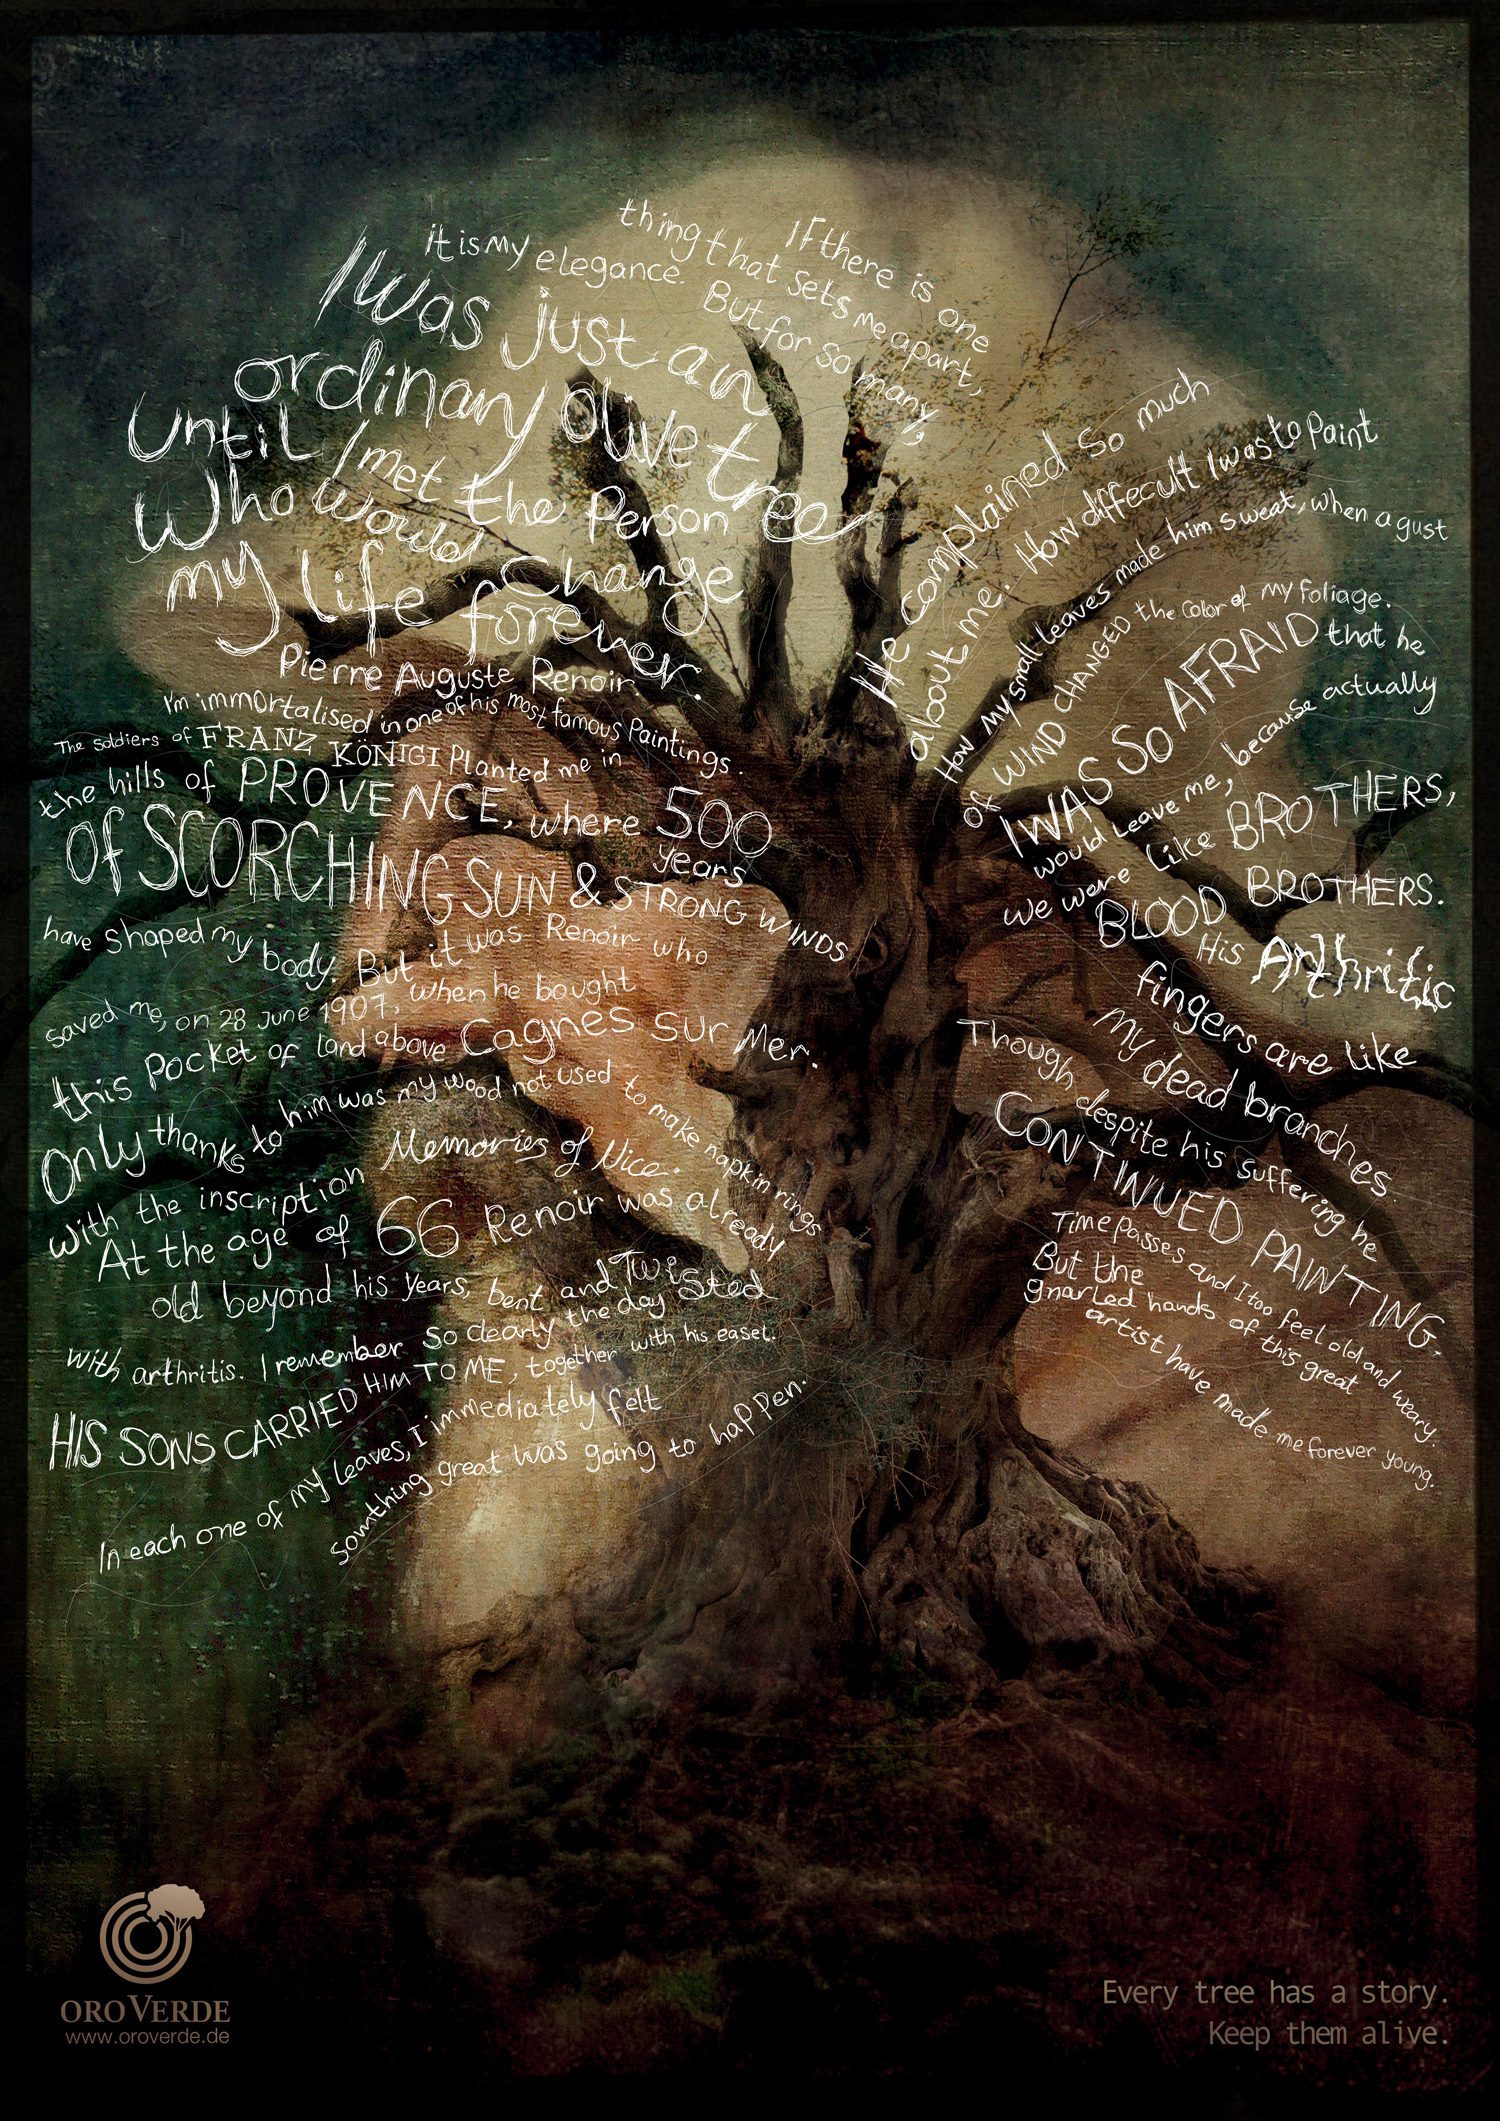 I was just an
ordinary olive tree
Until I met the Person
who would Change
my life forever.
Pierre Auguste Renoir.
I'm immortalised in one of his most famous Paintings.
The soldiers of FRANZ KÖNIGI Planted me in
the hills of PROVENCE, where 500
years
Of SCORCHING SUN & STRONG WINDS
have shaped my body. But it was Renoir who
saved me, on 28 June 1907, when he bought
this Pocket of land above Cagnes sur Mer.
Only thanks to him was my wood not used to make napkin rings
with the inscription Memories of Nice.
At the age of 66 Renoir was already
old beyond his years, bent and Twisted
with arthritis. I remember so clearly the day
HIS SONS CARRIED HIM TO ME, together with his easel.
In each one of my leaves, I immediately felt
somthing great was going to happen.
If there is one
thing that sets me apart,
it is my elegance. But for so many,
He complained so much
about me. How diffecult I was to Paint
How my small leaves made him sweat, when a gust
of WIND CHANGED the color of my foliage.
I WAS SO AFRAID that he
would leave me, because actually
we were like BROTHERS,
BLOOD BROTHERS.
His Arthritic
fingers are like
My dead branches.
Though despite his suffering he
CONTINUED PAINTING.
Time passes and I too feel old and weary.
But the
gnarled hands of this great
artist have made me forever young.
OROVERDE
www.oroverde.de
Every tree has a story.
Keep them alive.